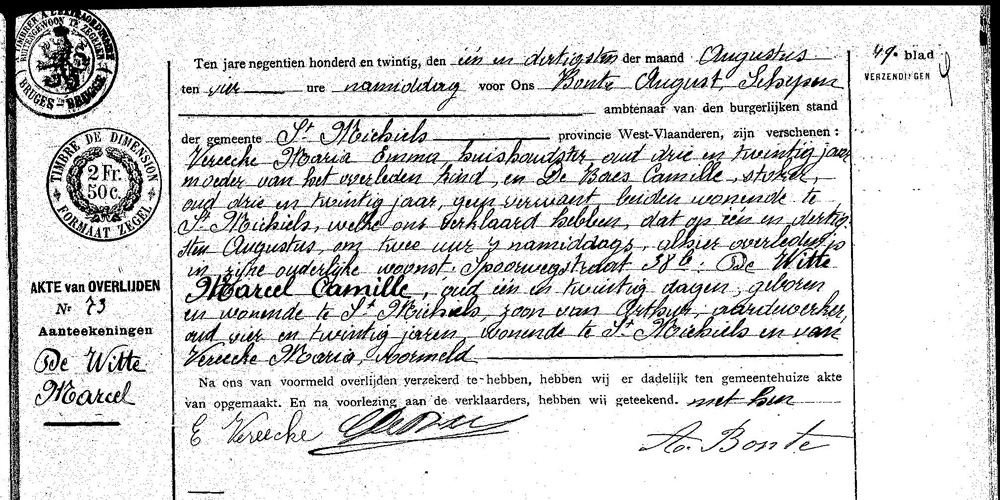 A TIMBRER A L'EXTRAORDINAIRE
BUITENGEWOON TE ZEGELEN
BRUGES - BRUGGE
TIMBRE DE DIMENSION
2 Fr.
50 c.
FORMAAT ZEGEL
AKTE van OVERLIJDEN
Nr 73
Aanteekeningen
De Witte
Marcel
49e blad
VERZENDINGEN
Ten jare negentien honderd en twintig, den één en dertigsten der maand Augustus
ten vier ure namiddag voor Ons Bonte August, Schepen
ambtenaar van den burgerlijken stand
der gemeente St Michiels provincie West-Vlaanderen, zijn verschenen :
Vereecke Maria Emma, huishoudster, oud drie en twintig jaar
moeder van het overleden kind, en De Boes Camille, stoker,
oud drie en twintig jaar, geen verwant, beiden wonende te
St Michiels, welke ons verklaard hebben, dat op één en dertig-
sten Augustus, om twee uur 's namiddags, alhier overleden is
in zijne ouderlijke woonst Spoorwegstraat 38b: De Witte
Marcel Camille, oud één en twintig dagen, geboren
en wonende te St Michiels, zoon van Arthur, aardewerker,
oud vier en twintig jaren, wonende te St Michiels en van
Vereecke Maria, voormeld
Na ons van voormeld overlijden verzekerd te hebben, hebben wij er dadelijk ten gemeentehuize akte
van opgemaakt. En na voorlezing aan de verklaarders, hebben wij geteekend. met hen
E Vereecke
A. Bonte